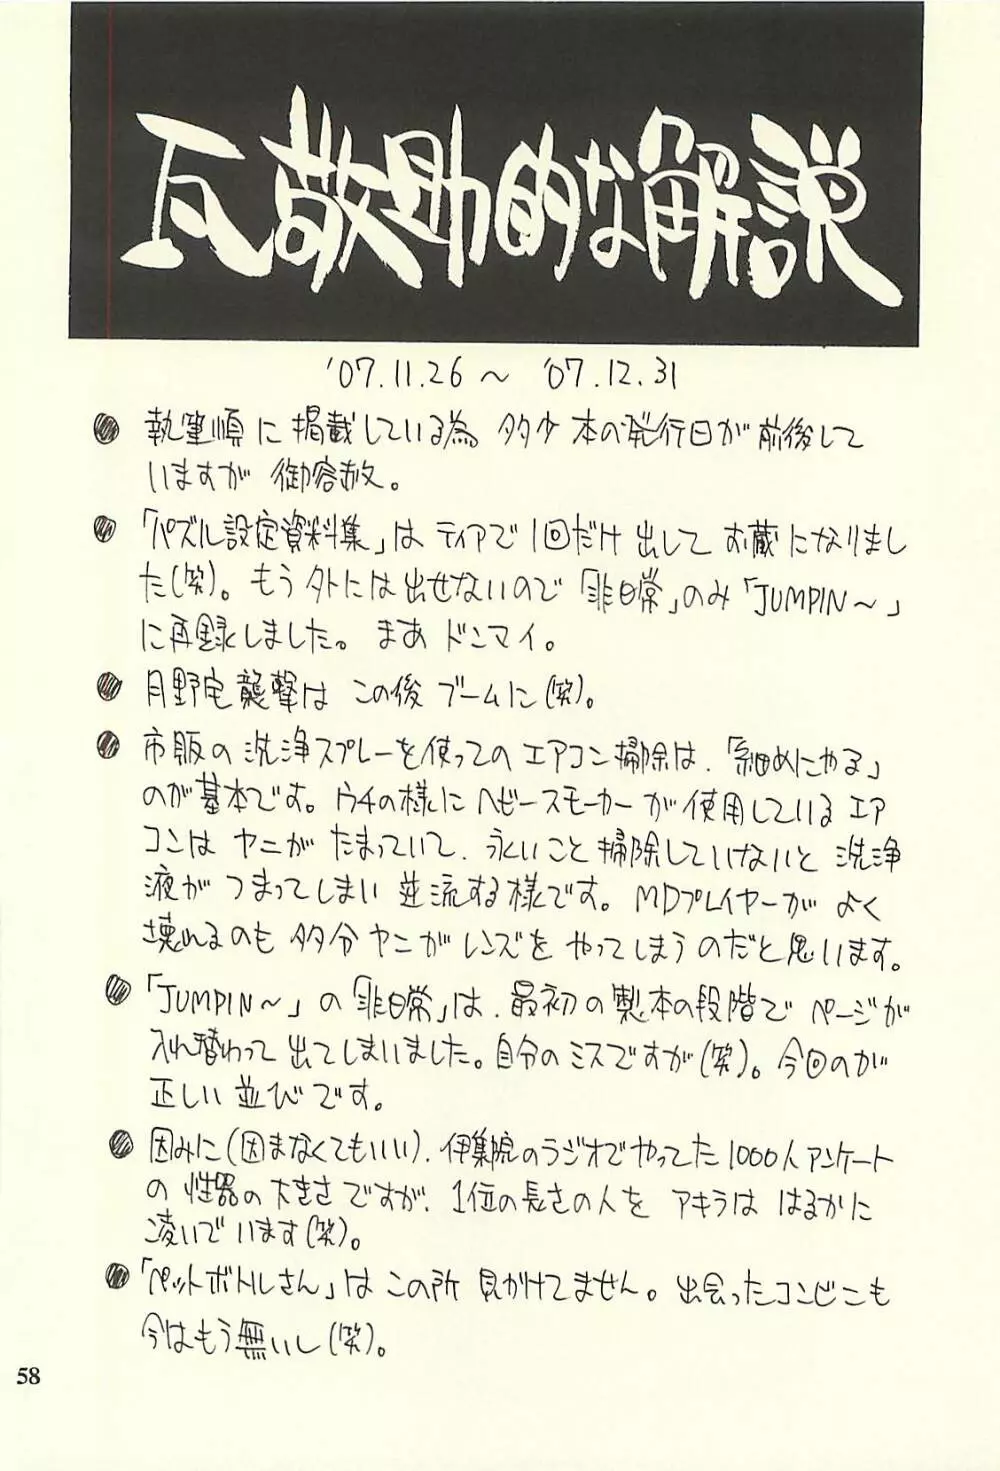 瓦敬助的な解説
'07.11.26～'07.12.31
執筆順に掲載している為 多少本の発行日が前後して
いますが御容赦。
「パズル設定資料集」はティアで1回だけ出してお蔵になりまし
た(笑)。もう外には出せないので「非日常」のみ「JUMPIN～」
に再録しました。まあドンマイ。
月野宅襲撃はこの後ブームに(笑)。
市販の洗浄スプレーを使ってのエアコン掃除は、「細めにやる」
のが基本です。ウチの様にヘビースモーカーが使用しているエア
コンはヤニがたまっていて、永いこと掃除していけないと洗浄
液がつまってしまい逆流する様です。MDプレイヤーがよく
壊れるのも多分ヤニがレンズをやってしまうのだと思います。
「JUMPIN～」の「非日常」は、最初の製本の段階でページが
入れ替わって出てしまいました。自分のミスですが(笑)。今回のが
正しい並びです。
因みに(因まなくてもいい)、伊集院のラジオでやってた1000人アンケート
の性器の大きさですが、1位の長さの人をアキラははるかに
凌いでいます(笑)。
「ペットボトルさん」はこの所見かけてません。出会ったコンビニも
今はもう無いし(笑)。
58